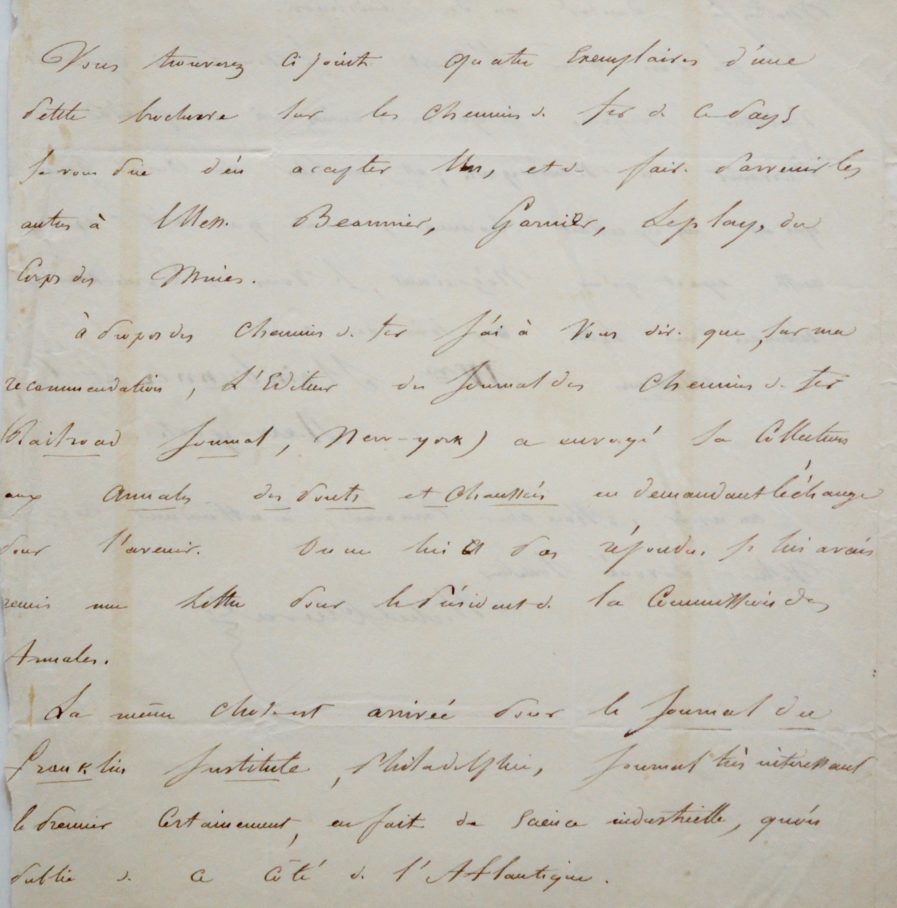 Vous trouverez ci joint quatre Exemplaires d'une
petite brochure sur les chemins de fer de ce pays
Je vous prie d'en accepter Un, et de faire parvenir les
autres à MMess. Beaunier, Garnier, Leplay, du
Corps des Mines.
à propos des chemins de fer j'ai à Vous dire que, sur ma
recommendation, L'Editeur du Journal des Chemins de fer
(Railroad Journal, New-york) a envoyé sa Collection
aux Annales des ponts et chaussées en demandant l'échange
pour l'avenir. On ne lui a pas répondu. Je lui avais
remis une lettre pour le Président de la Commission des
Annales.
La même chose est arrivée pour le Journal du
Franklin Institute, Philadelphie, Journal très interessant
le premier certainement, en fait de Science industrielle, qu'on
publie de ce côté de l'Atlantique.